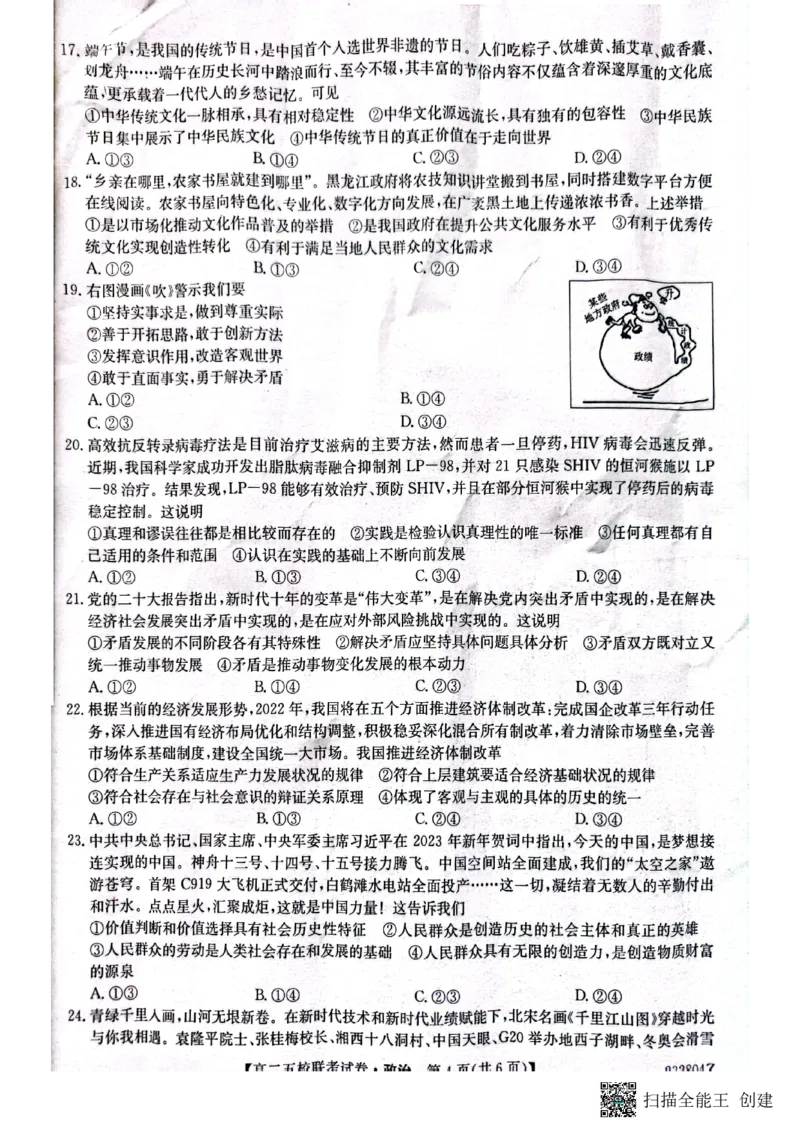 17. 端午节,是我国的传统节日,是中国首个入选世界非遗的节日。人们吃粽子、饮雄黄、插艾草、戴香囊、
划龙舟……端午在历史长河中踏浪而行、至今不辍,其丰富的节俗内容不仅蕴含着深邃厚重的文化底
蕴,更承载着一代代人的乡愁记忆。可见
①中华传统文化一脉相承,具有相对稳定性 ②中华文化源远流长,具有独有的包容性 ③中华民族
节日集中展示了中华民族文化 ④中华传统节日的真正价值在于走向世界
A. ①③ B. ①④ C. ②③ D. ②④
18. “乡亲在哪里,农家书屋就建到哪里”。黑龙江政府将农技知识讲堂搬到书屋,同时搭建数字平台方便
在线阅读。农家书屋向特色化、专业化、数字化方向发展,在广袤黑土地上传递浓浓书香。上述举措
①是以市场化推动文化作品普及的举措 ②是我国政府在提升公共文化服务水平 ③有利于优秀传
统文化实现创造性转化 ④有利于满足当地人民群众的文化需求
A. ①② B. ①③ C. ②④ D. ③④
19. 右图漫画《吹》警示我们要
①坚持实事求是,做到尊重实际
②善于开拓思路,敢于创新方法
③发挥意识作用,改造客观世界
④敢于直面事实,勇于解决矛盾
A. ①② B. ①④
C. ②③ D. ③④
某些
地方政府
升
政绩
20. 高效抗反转录病毒疗法是目前治疗艾滋病的主要方法,然而患者一旦停药,HIV 病毒会迅速反弹。
近期,我国科学家成功开发出脂肽病毒融合抑制剂 LP-98,并对 21 只感染 SHIV 的恒河猴施以 LP
-98 治疗。结果发现,LP-98 能够有效治疗、预防 SHIV,并且在部分恒河猴中实现了停药后的病毒
稳定控制。这说明
①真理和谬误往往都是相比较而存在的 ②实践是检验认识真理性的唯一标准 ③任何真理都有自
己适用的条件和范围 ④认识在实践的基础上不断向前发展
A. ①② B. ①③ C. ③④ D. ②④
21. 党的二十大报告指出,新时代十年的变革是“伟大变革”,是在解决党内突出矛盾中实现的,是在解决
经济社会发展突出矛盾中实现的,是在应对外部风险挑战中实现的。这说明
①矛盾发展的不同阶段各有其特殊性 ②解决矛盾应坚持具体问题具体分析 ③矛盾双方既对立又
统一推动事物发展 ④矛盾是推动事物变化发展的根本动力
A. ①② B. ①④ C. ②③ D. ③④
22. 根据当前的经济发展形势,2022 年,我国将在五个方面推进经济体制改革:完成国企改革三年行动任
务,深入推进国有经济布局优化和结构调整,积极稳妥深化混合所有制改革,着力清除市场壁垒,完善
市场体系基础制度,建设全国统一大市场。我国推进经济体制改革
①符合生产关系适应生产力发展状况的规律 ②符合上层建筑要适合经济基础状况的规律
③符合社会存在与社会意识的辩证关系原理 ④体现了客观与主观的具体的历史的统一
A. ①② B. ①③ C. ②④ D. ③④
23. 中共中央总书记、国家主席、中央军委主席习近平在 2023 年新年贺词中指出,今天的中国,是梦想接
连实现的中国。神舟十三号、十四号、十五号接力腾飞。中国空间站全面建成,我们的“太空之家”遨
游苍穹。首架 C919 大飞机正式交付,白鹤滩水电站全面投产……这一切,凝结着无数人的辛勤付出
和汗水。点点星火,汇聚成炬,这就是中国力量！这告诉我们
①价值判断和价值选择具有社会历史性特征 ②人民群众是创造历史的社会主体和真正的英雄
③人民群众的劳动是人类社会存在和发展的基础 ④人民群众具有无限的创造力,是创造物质财富
的源泉
A. ①③ B. ①④ C. ②③ D. ②④
24. 青绿千里入画,山河无垠新卷。在新时代技术和新时代业绩赋能下,北宋名画《千里江山图》穿越时光
与你我相遇。袁隆平院士、张桂梅校长、湘西十八洞村、中国天眼、G20 举办地西子湖畔、冬奥会滑雪
【高二五校联考试卷·政治 第 4 页(共 6 页)】
扫描全能王 创建